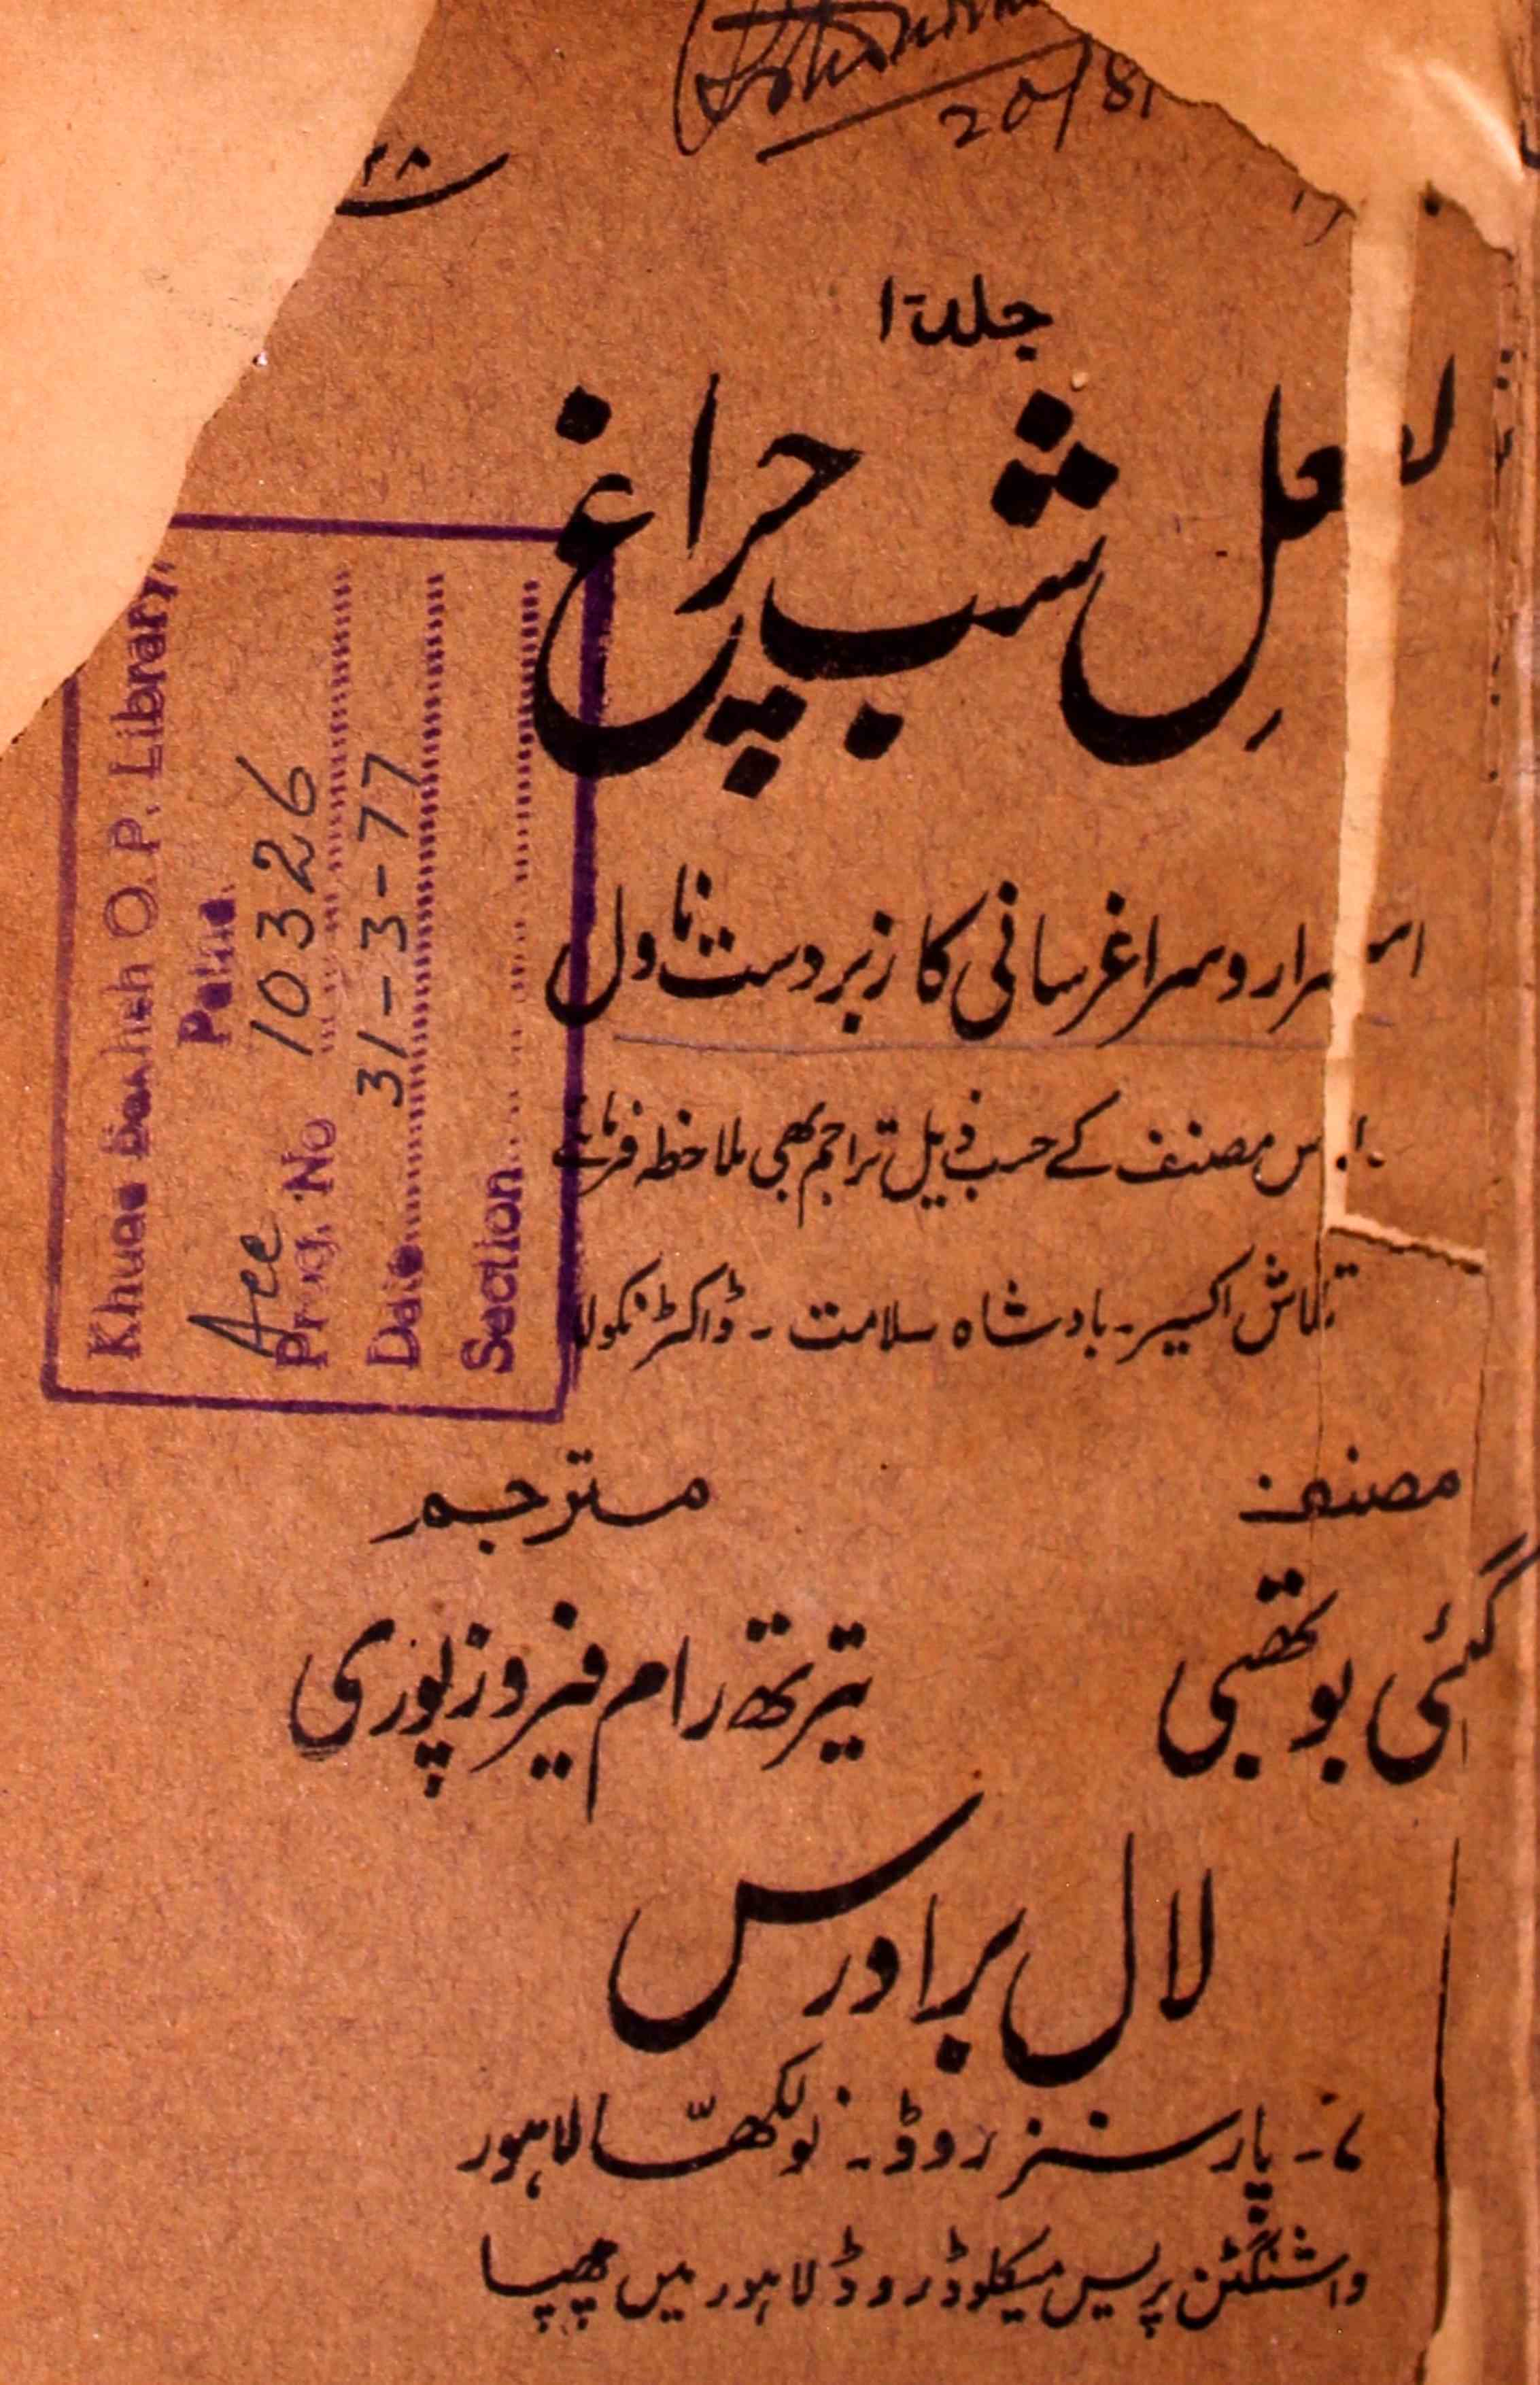 20/81
جلد ۱
لعلِ شب چراغ
اسرار و سراغرسانی کا زبردست ناول
اس مصنف کے حسب ذیل تراجم بھی ملاحظہ فرمائے
تلاش اکسیر - بادشاہ سلامت - ڈاکٹر نکولا
مصنف
مترجم
گئی بوتھبی
تیرتھ رام فیروزپوری
لال برادرس
۷ - پارسنز روڈ - نولکھّا لاہور
واشنگٹن پریس میکلوڈ روڈ لاہور میں چھپا
Khuda Bakhsh O.P. Library
Patna
Acc
Prog. No 10326
Date 31-3-77
Section